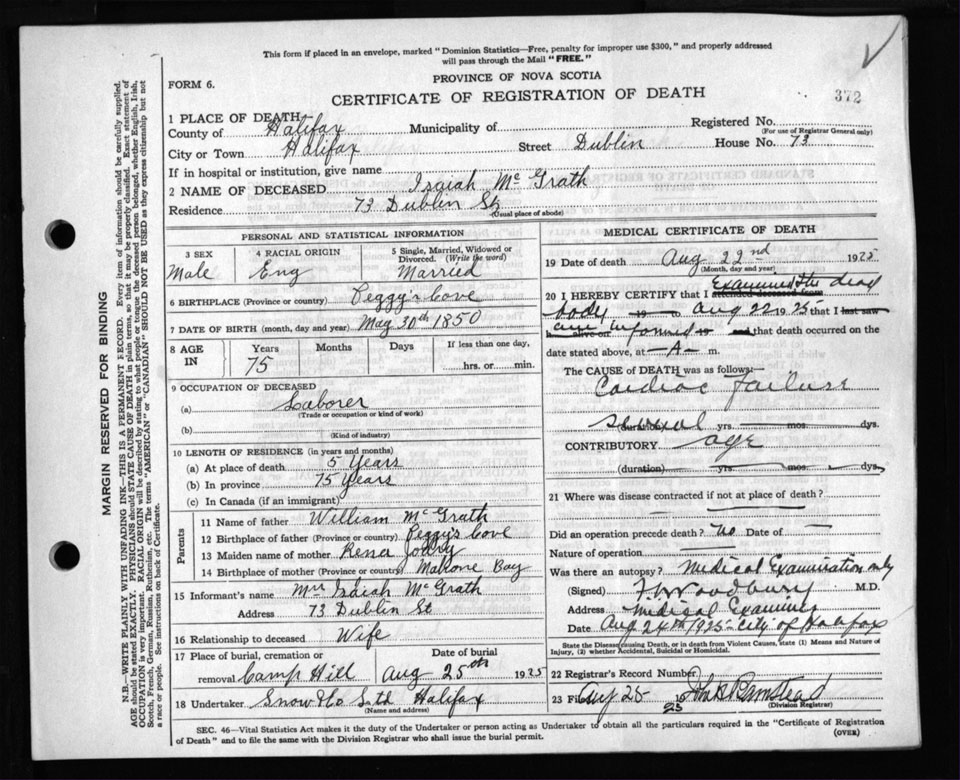 This form if placed in an envelope, marked "Dominion Statistics—Free, penalty for improper use $300," and properly addressed
will pass through the Mail "FREE."
PROVINCE OF NOVA SCOTIA
FORM 6.
CERTIFICATE OF REGISTRATION OF DEATH
372
1 PLACE OF DEATH—
County of Halifax Municipality of Registered No.
(For use of Registrar General only)
City or Town Halifax Street Dublin House No. 73
If in hospital or institution, give name
2 NAME OF DECEASED Isaiah McGrath
Residence 73 Dublin St
(Usual place of abode)
PERSONAL AND STATISTICAL INFORMATION
3 SEX 4 RACIAL ORIGIN 5 Single, Married, Widowed or Divorced. (Write the word)
Male Eng Married
6 BIRTHPLACE (Province or country) Peggy's Cove
7 DATE OF BIRTH (month, day and year) May 30th 1850
8 AGE IN Years Months Days If less than one day,
75 hrs. or min.
9 OCCUPATION OF DECEASED
(a) Laborer
(Trade or occupation or kind of work)
(b)
(Kind of industry)
10 LENGTH OF RESIDENCE (in years and months)
(a) At place of death 5 Years
(b) In province 75 Years
(c) In Canada (if an immigrant)
Parents
11 Name of father William McGrath
12 Birthplace of father (Province or country) Peggy's Cove
13 Maiden name of mother Rena
14 Birthplace of mother (Province or country) Mahone Bay
15 Informant's name Mrs Isaiah McGrath
Address 73 Dublin St
16 Relationship to deceased Wife
17 Place of burial, cremation or removal Camp Hill Date of burial Aug 25th 1925
18 Undertaker Snow & Co Ltd Halifax
(Name and address)
MEDICAL CERTIFICATE OF DEATH
19 Date of death Aug 22nd 1925
(Month, day and year)
20 I HEREBY CERTIFY that I attended deceased from Examined the dead
body 19 to Aug 22 1925 that I last saw
h alive on am informed 19 and that death occurred on the
date stated above, at A m.
The CAUSE OF DEATH was as follows:
Cardiac Failure
(duration) yrs. mos. dys.
CONTRIBUTORY age
(duration) yrs. mos. dys.
21 Where was disease contracted if not at place of death?
Did an operation precede death? No Date of
Nature of operation
Was there an autopsy? Medical Examination only
(Signed) F Woodbury M.D.
Address Medical Examiner
Date Aug 24th 1925 City of Halifax
State the Disease causing Death, or in death from Violent Causes, state (1) Means and Nature of
Injury, (2) whether Accidental, Suicidal or Homicidal.
22 Registrar's Record Number
23 Filed Aug 25 25
(Division Registrar)
SEC. 46—Vital Statistics Act makes it the duty of the Undertaker or person acting as Undertaker to obtain all the particulars required in the "Certificate of Registration
of Death" and to file the same with the Division Registrar who shall issue the burial permit.
(OVER)
MARGIN RESERVED FOR BINDING
N.B.—WRITE PLAINLY WITH UNFADING INK—THIS IS A PERMANENT RECORD. Every item of information should be carefully supplied.
AGE should be stated EXACTLY. PHYSICIANS should STATE CAUSE OF DEATH in plain terms, so that it may be properly classified. Exact statement of
OCCUPATION is very important. RACIAL ORIGIN will be described by stating to what people or tongue the deceased person belonged, whether English, Irish,
Scotch, French, German, Russian, Ruthenian, etc. The terms "AMERICAN" or "CANADIAN" SHOULD NOT BE USED as they express citizenship but not
a race or people. See instructions on back of Certificate.